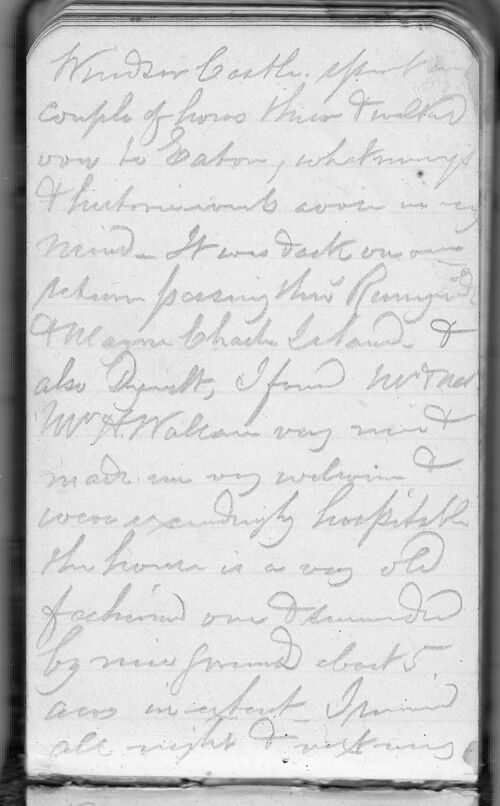 Windsor Castle. spent a
couple of hours there & walked
over to Eaton, what
& historic arose in my
mind - It was dark on our
return passing thro' Runnymede
& Magna Charta Island - &
also I found Mr &
Mr A Watson very nice &
made me very welcome &
were exceedingly hospitable
the house is a very old
fashioned one & surrounded
by nice ground about 5
acres in extent - I remained
all night & next